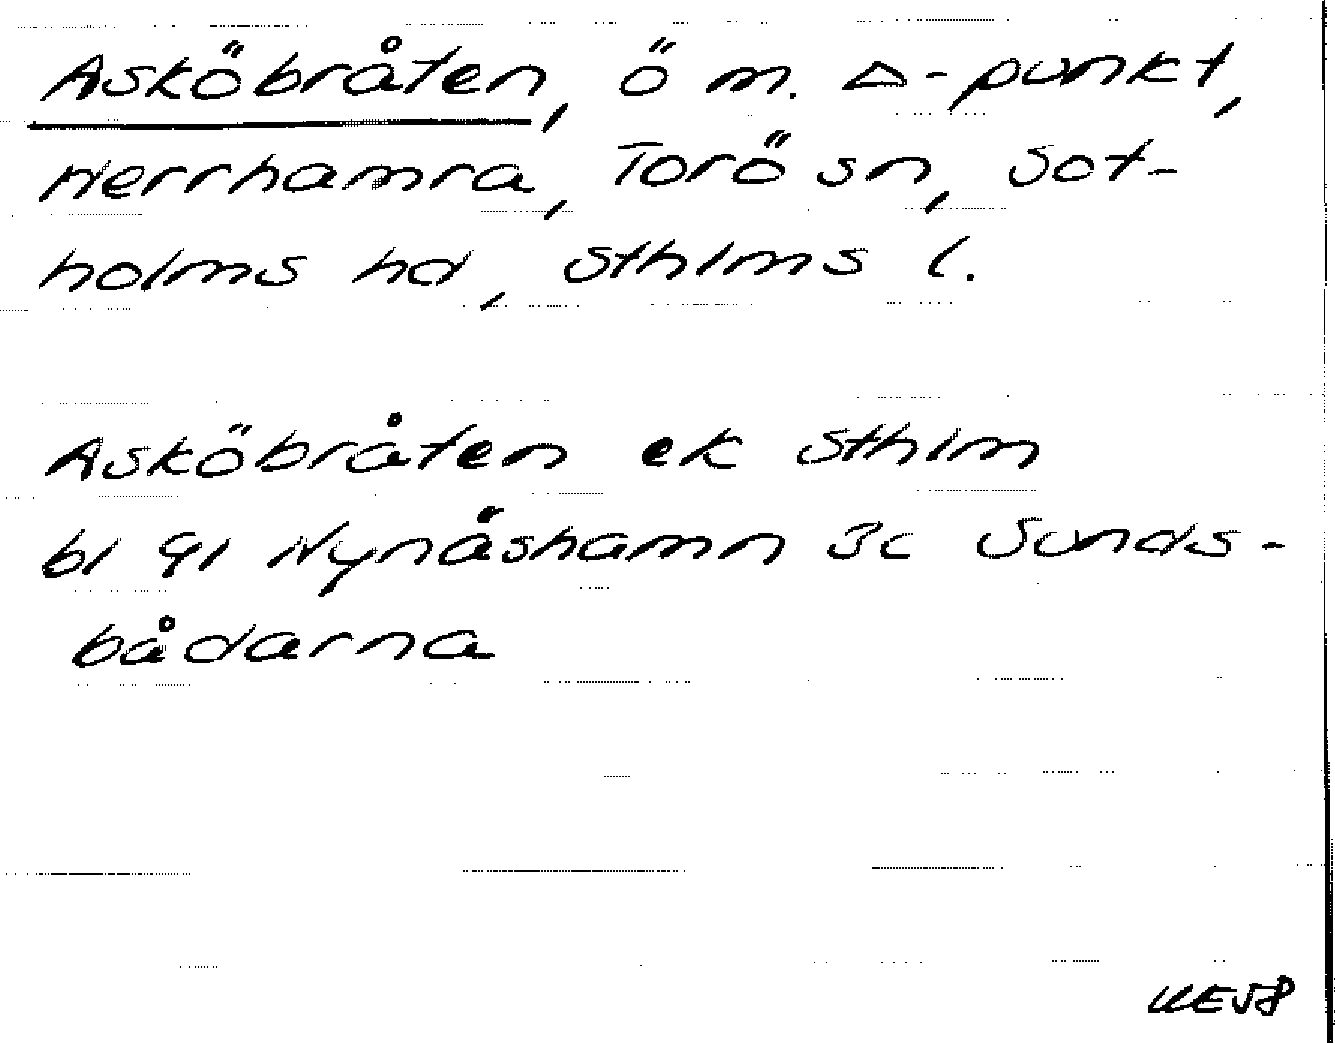 Asköbråten, ö m. △-punkt,
Herrhamra, Torö sn, Sot-
holms hd, Sthlms l.
Asköbråten ek Sthlm
bl 91 Nynäshamn 3c Sunds-
bådarna